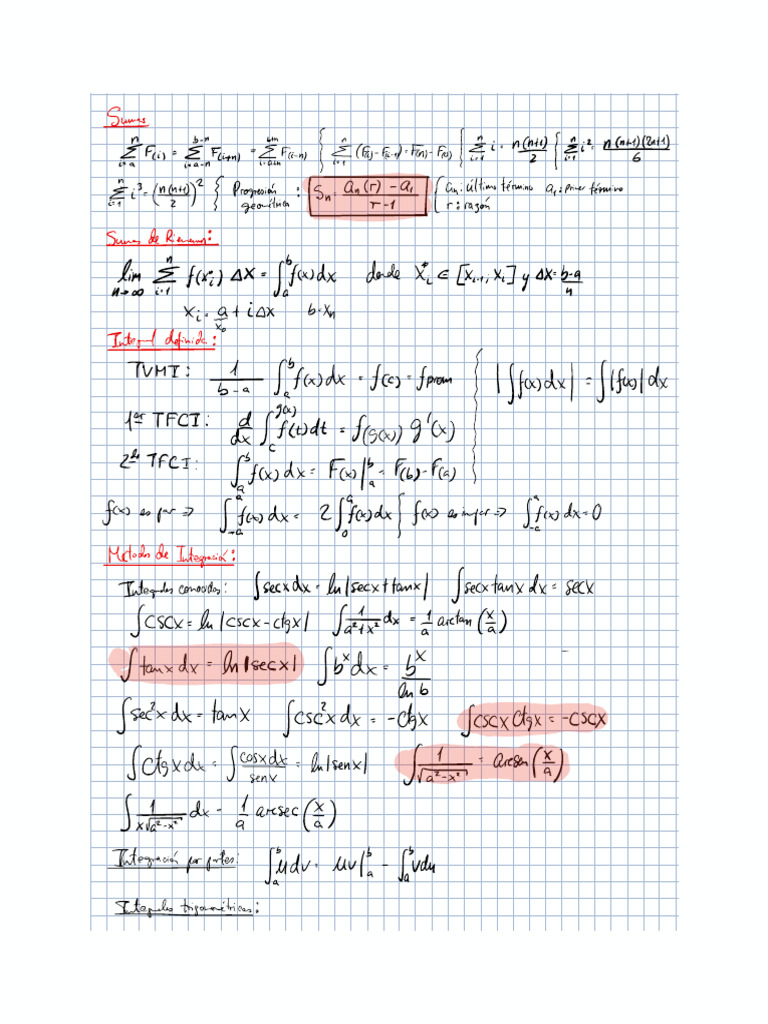 Sumas
∑_{i=a}^{n} F(i) = ∑_{i=a-n}^{b-n} F(i+n) = ∑_{i=a+n}^{b+n} F(i-n) { ∑_{i=1}^{n} (F(i) - F(i-1)) = F(n) - F(0) { ∑_{i=1}^{n} i = n(n+1)/2 { ∑_{i=1}^{n} i² = n(n+1)(2n+1)/6
∑_{i=1}^{n} i³ = (n(n+1)/2)² { Progresión geométrica : Sₙ = (aₙ(r) - a₁)/(r-1) { aₙ: último término a₁: primer término r: razón
Sumas de Riemann:
lim_{n→∞} ∑_{i=1}^{n} f(xᵢ*) Δx = ∫_a^b f(x)dx donde xᵢ* ∈ [xᵢ₋₁, xᵢ] y Δx = (b-a)/n
xᵢ = a + iΔx b = xₙ
x₀
Integral definida:
TVMI: 1/(b-a) ∫_a^b f(x)dx = f(c) = fprom { |∫f(x)dx| = ∫|f(x)|dx
1er TFCI: d/dx ∫_c^{g(x)} f(t)dt = f(g(x)) g'(x)
2do TFCI: ∫_a^b f(x)dx = F(x)|_a^b = F(b) - F(a)
f(x) es par ⇒ ∫_{-a}^{a} f(x)dx = 2∫_0^a f(x)dx { f(x) es impar ⇒ ∫_{-a}^{a} f(x)dx = 0
Metodos de Integración:
Integrales conocidas: ∫secxdx = ln|secx+tanx| ∫secxtanxdx = secx
∫cscx = ln|cscx-ctgx| ∫1/(a²+x²) dx = 1/a arctan(x/a)
∫tanxdx = ln|secx| ∫bˣdx = bˣ/ln b
∫sec²xdx = tanx ∫csc²xdx = -ctgx ∫cscxctgx = -cscx
∫ctgxdx = ∫cosxdx/senx = ln|senx| ∫1/√(a²-x²) = arcsen(x/a)
∫1/(x√(a²-x²)) dx = 1/a arcsec(x/a)
Integración por partes: ∫_a^b udv = uv|_a^b - ∫_a^b vdu
Integrales trigonométricas: